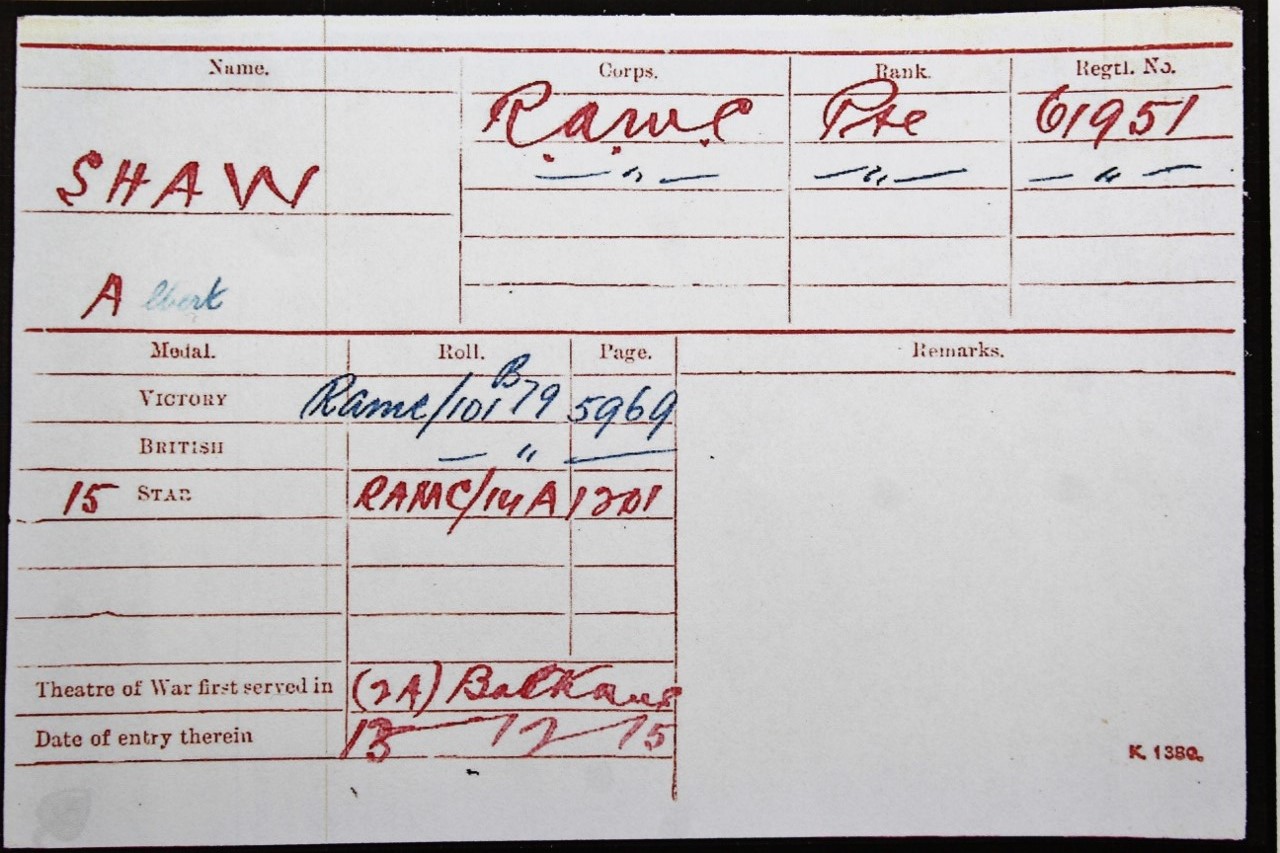 Name. Corps. Rank. Regtl. No.
R.A.M.C Pte 61951
SHAW — " — — " — — " —
Albert
Medal. Roll. Page. Remarks.
VICTORY RAMC/101 B79 5969
BRITISH — " —
15 STAR RAMC/14A 1201
Theatre of War first served in (2A) Balkans
Date of entry therein 13 — 12 — 15
K. 1380.